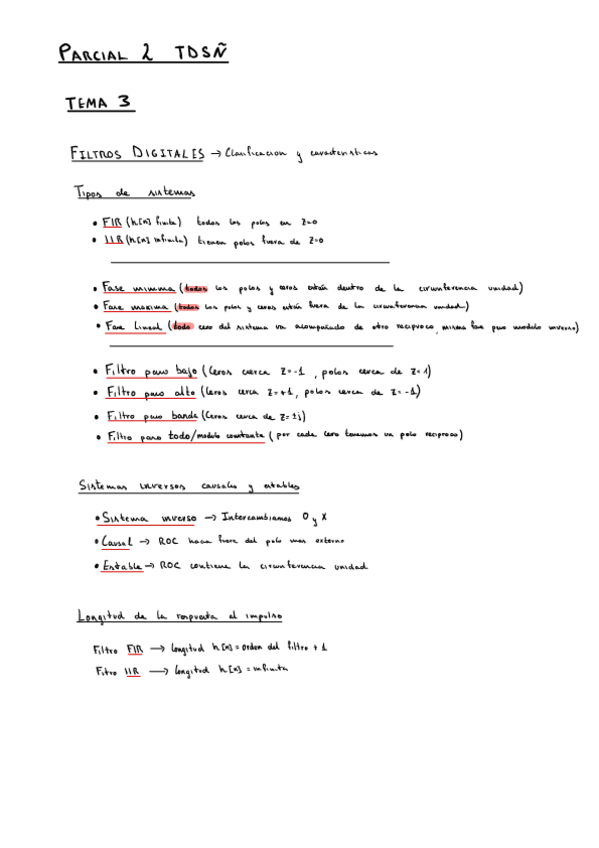 PARCIAL 2 TDSÑ
TEMA 3
FILTROS DIGITALES → Clasificacion y caracteristicas
Tipos de sistemas
• FIR (h[n] finita) todos los polos en z=0
• IIR (h[n] infinita) tienen polos fuera de z=0
• Fase minima (todos los polos y ceros están dentro de la circunferencia unidad)
• Fase maxima (todos los polos y ceros están fuera de la circunferencia unidad)
• Fase Lineal (todo cero del sistema va acompañado de otro reciproco, misma fase pero modulo inverso)
• Filtro paso bajo (Ceros cerca z=-1, polos cerca de z=1)
• Filtro paso alto (Ceros cerca z=+1, polos cerca de z=-1)
• Filtro paso banda (Ceros cerca de z=±j)
• Filtro paso todo/modulo constante (por cada cero tenemos un polo reciproco)
Sistemas inversos causales y estables
• Sistema inverso → Intercambiamos O y X
• Causal → ROC hacia fuera del polo mas externo
• Estable → ROC contiene la circunferencia unidad
Longitud de la respuesta al impulso
Filtro FIR → longitud h[n] = orden del filtro + 1
Fitro IIR → longitud h[n] = infinita